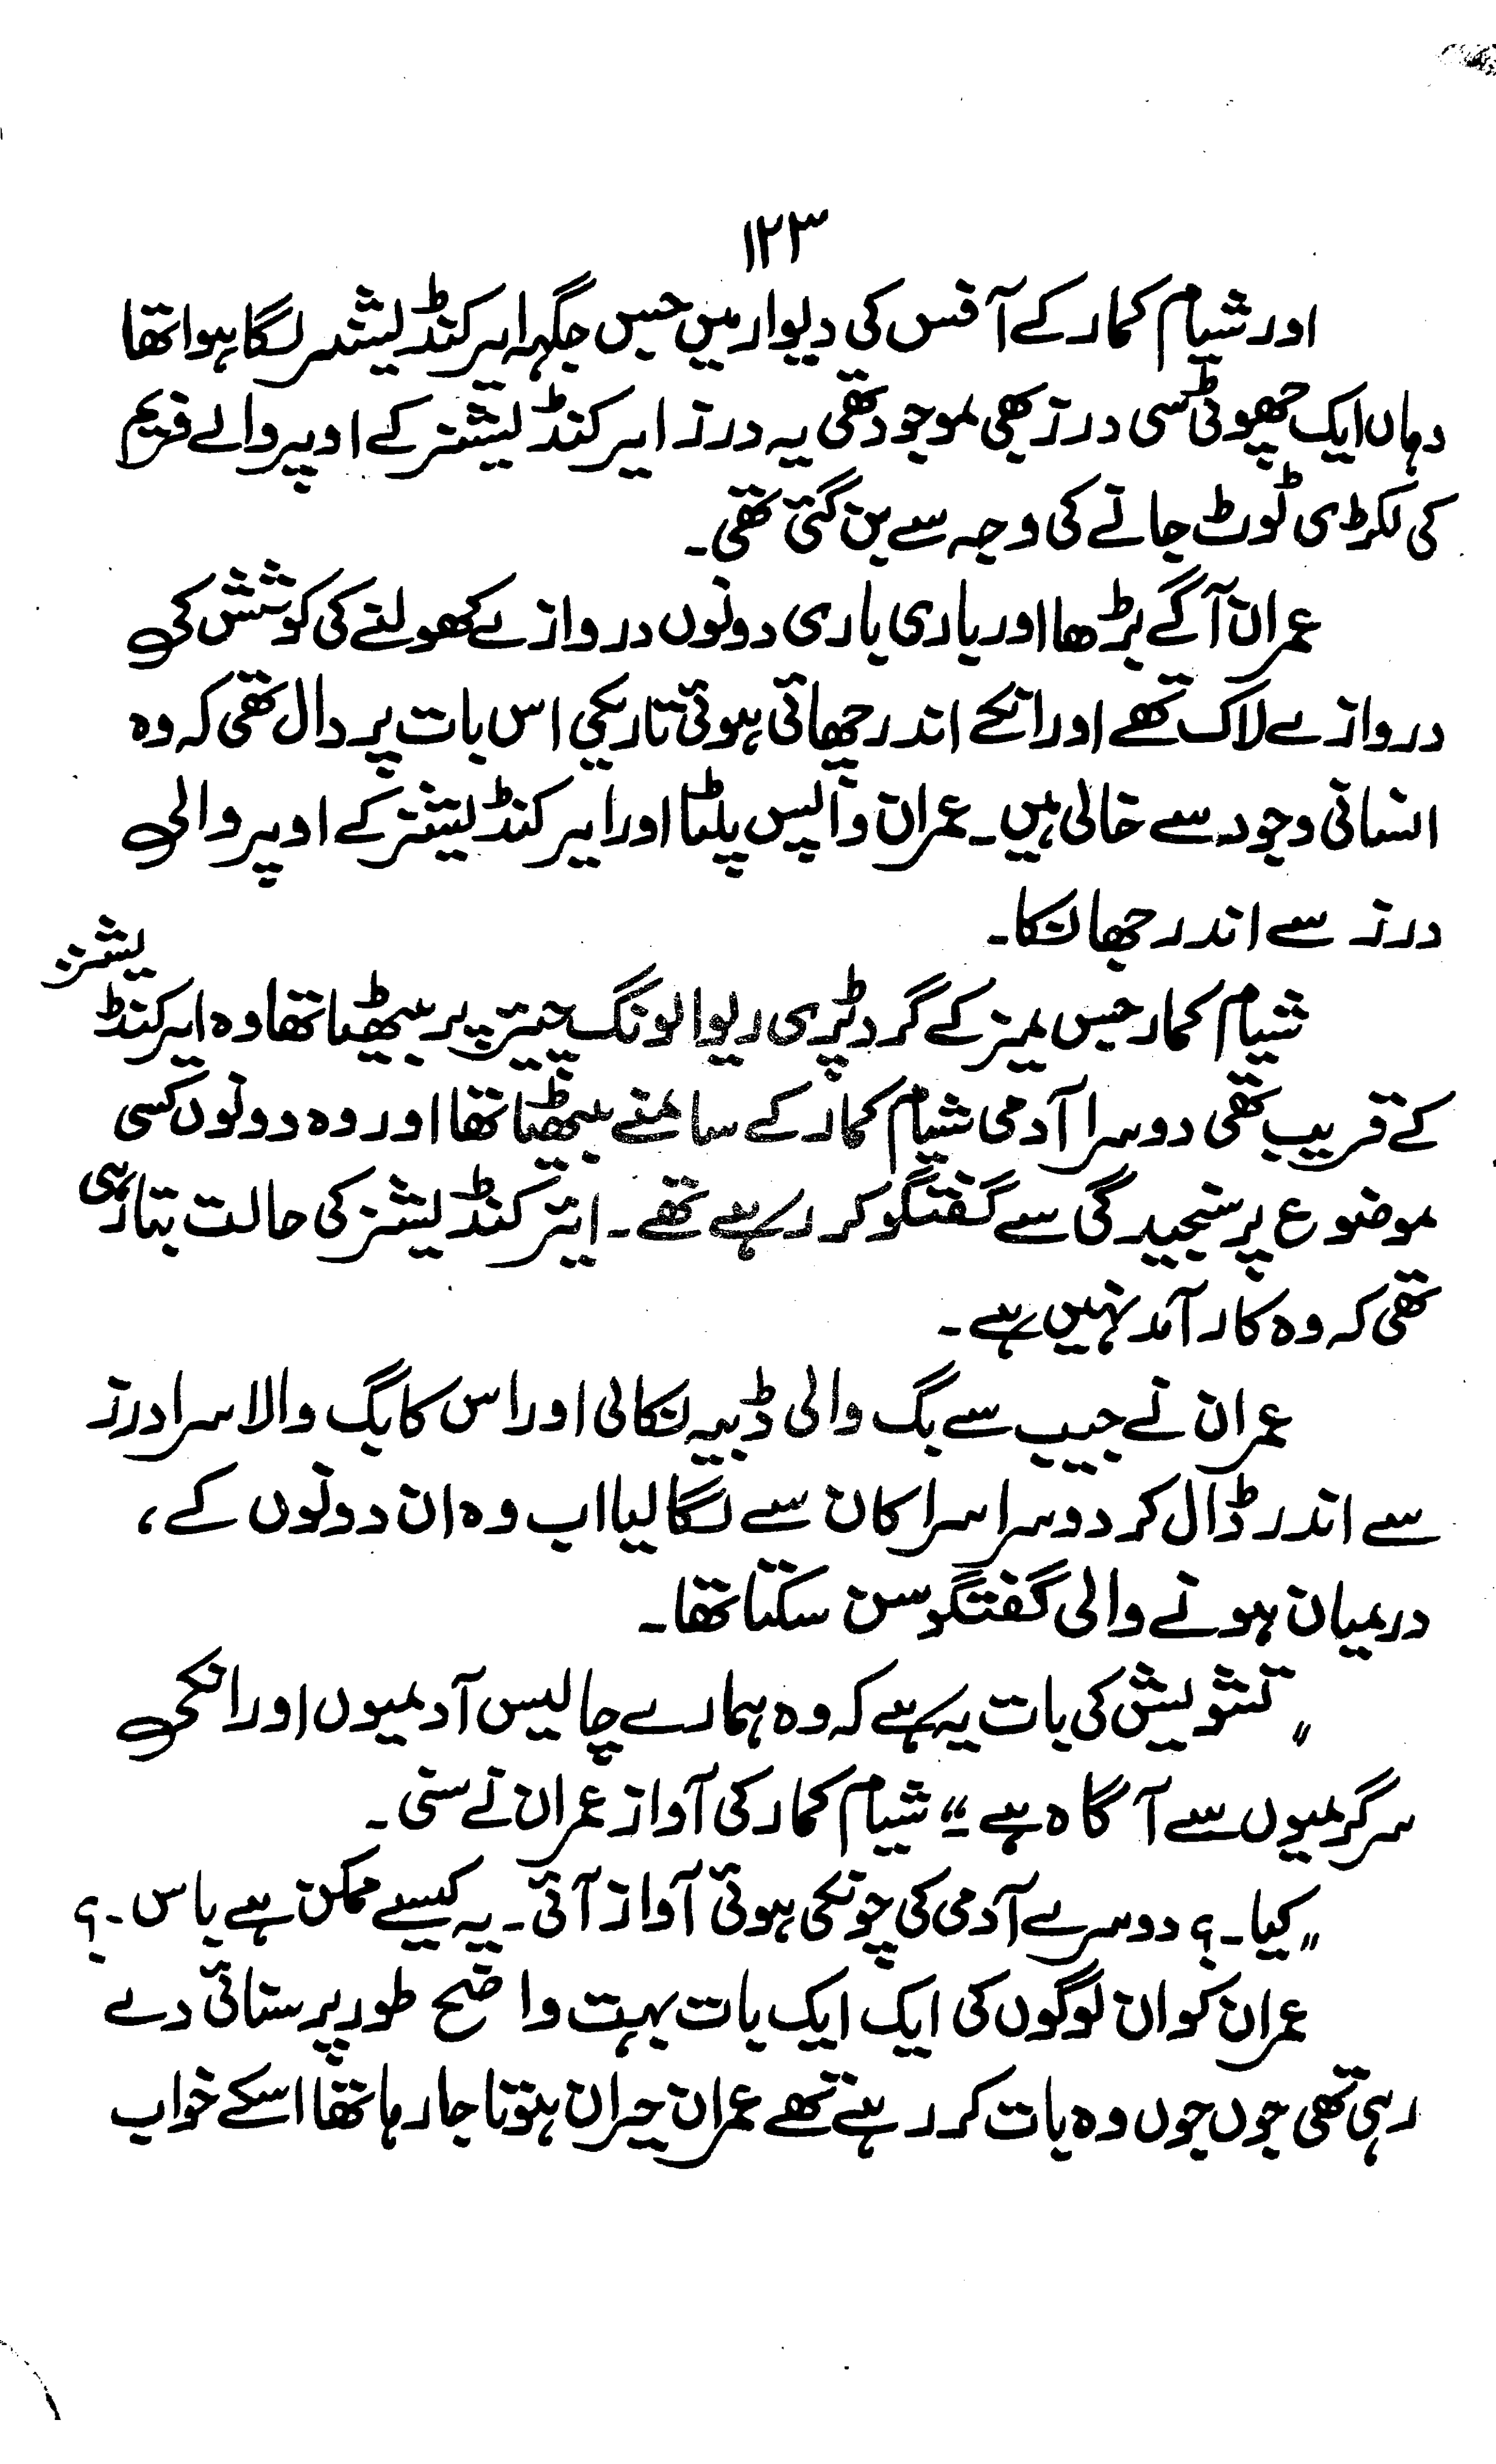 ۱۲۳
اور شیام کمار کے آفس کی دیوار میں جس جگہ ایرکنڈیشنر لگا ہوا تھا
وہاں ایک چھوٹی سی درز بھی موجود تھی یہ درز ایرکنڈیشنر کے اوپر والے فریم
کی لکڑی ٹوٹ جانے کی وجہ سے بن گئی تھی۔
عمران آگے بڑھا اور باری باری دونوں دروازے کھولنے کی کوشش کی
دروازے لاک تھے اور انکے اندر چھائی ہوئی تاریکی اس بات پر دال تھی کہ وہ
انسانی وجود سے خالی ہیں۔ عمران واپس پلٹا اور ایرکنڈیشنر کے اوپر والی
درز سے اندر جھانکا۔
شیام کمار جس میز کے گرد پڑی ریوالونگ چیئر پر بیٹھا تھا وہ ایرکنڈیشنر
کے قریب تھی دوسرا آدمی شیام کمار کے سامنے بیٹھا تھا اور وہ دونوں کسی
موضوع پر سنجیدگی سے گفتگو کر رہے تھے۔ ایئرکنڈیشنر کی حالت بتا رہی
تھی کہ وہ کار آمد نہیں ہے۔
عمران نے جیب سے بگ والی ڈبیہ نکالی اور اس کا بگ والا سرا درز
سے اندر ڈال کر دوسرا سرا کان سے لگا لیا اب وہ ان دونوں کے،
درمیان ہونے والی گفتگو سن سکتا تھا۔
"تشویش کی بات یہ ہے کہ وہ ہمارے چالیس آدمیوں اور انکی
سرگرمیوں سے آگاہ ہے"۔ شیام کمار کی آواز عمران نے سنی۔
"کیا۔؟ دوسرے آدمی کی چونکی ہوئی آواز آئی۔ یہ کیسے ممکن ہے باس۔؟
عمران کو ان لوگوں کی ایک ایک بات بہت واضح طور پر سنائی دے
رہی تھی جوں جوں وہ بات کر رہے تھے عمران حیران ہوتا جا رہا تھا اسکے خواب